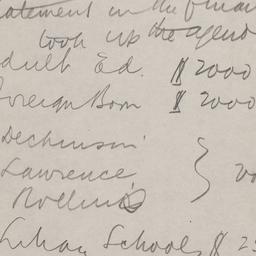 statement in the finan
took up the agend
dult Ed. $2000
Foreign Born $2000
Dickinson
Lawrence
Rollins
School $ 25